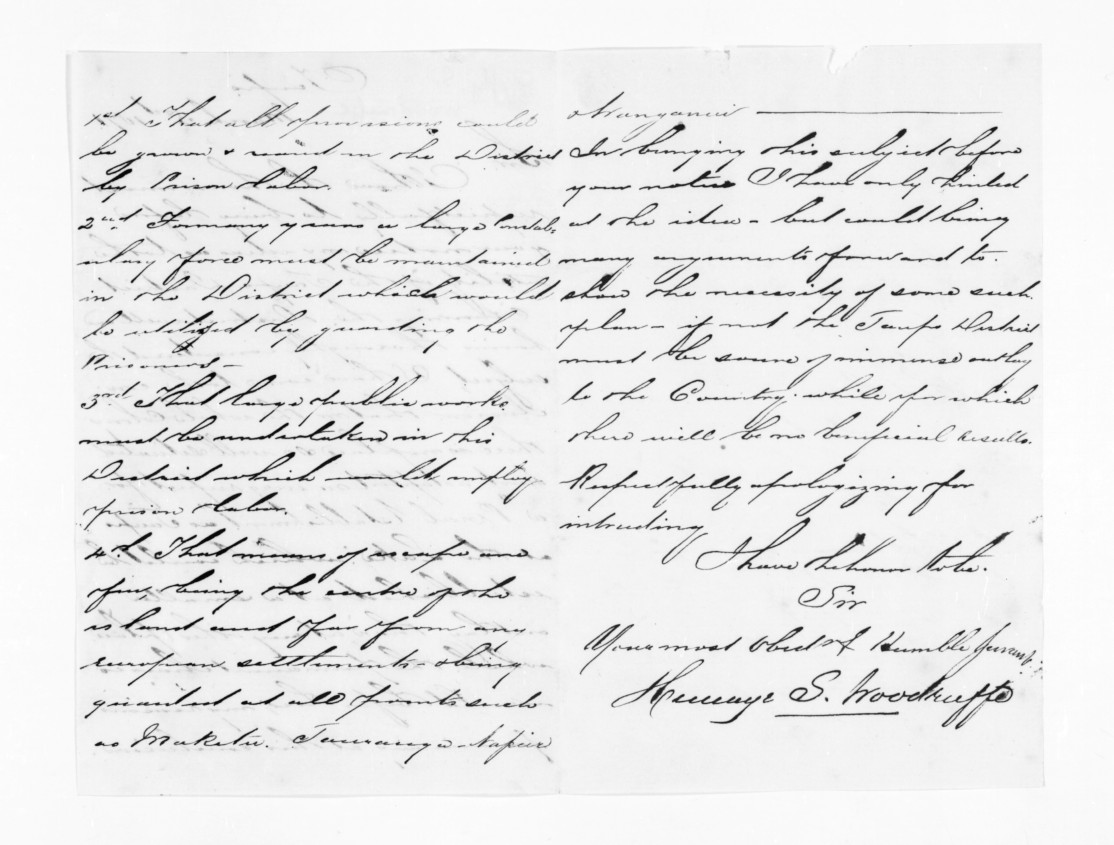 1st That all provisions could
be grown & raised in the District
by Prison Labor.
2nd For many years a large Constab
ulary force must be maintained
in the District which would
be utilized by guarding the
Prisoners —
3rd That large public works
must be undertaken in this
District which would employ
prison Labor.
4th That means of escape are
few, being the centre of the
island and far from any
european settlements - & being
guarded at all points such
as Maketu. Tauranga Napier
Wanganui
In bringing this subject before
your notice I have only hinted
at the idea - but could bring
many arguments forward to
show the necessity of some such
plan - if not the Taupo District
must be source of immense outlay
to the Country. while for which
there will be no beneficial results.
Respectfully apologizing for
intruding
I have the honor to be.
Sir
Your most obedt & Humble Servant
S. Woodruffe